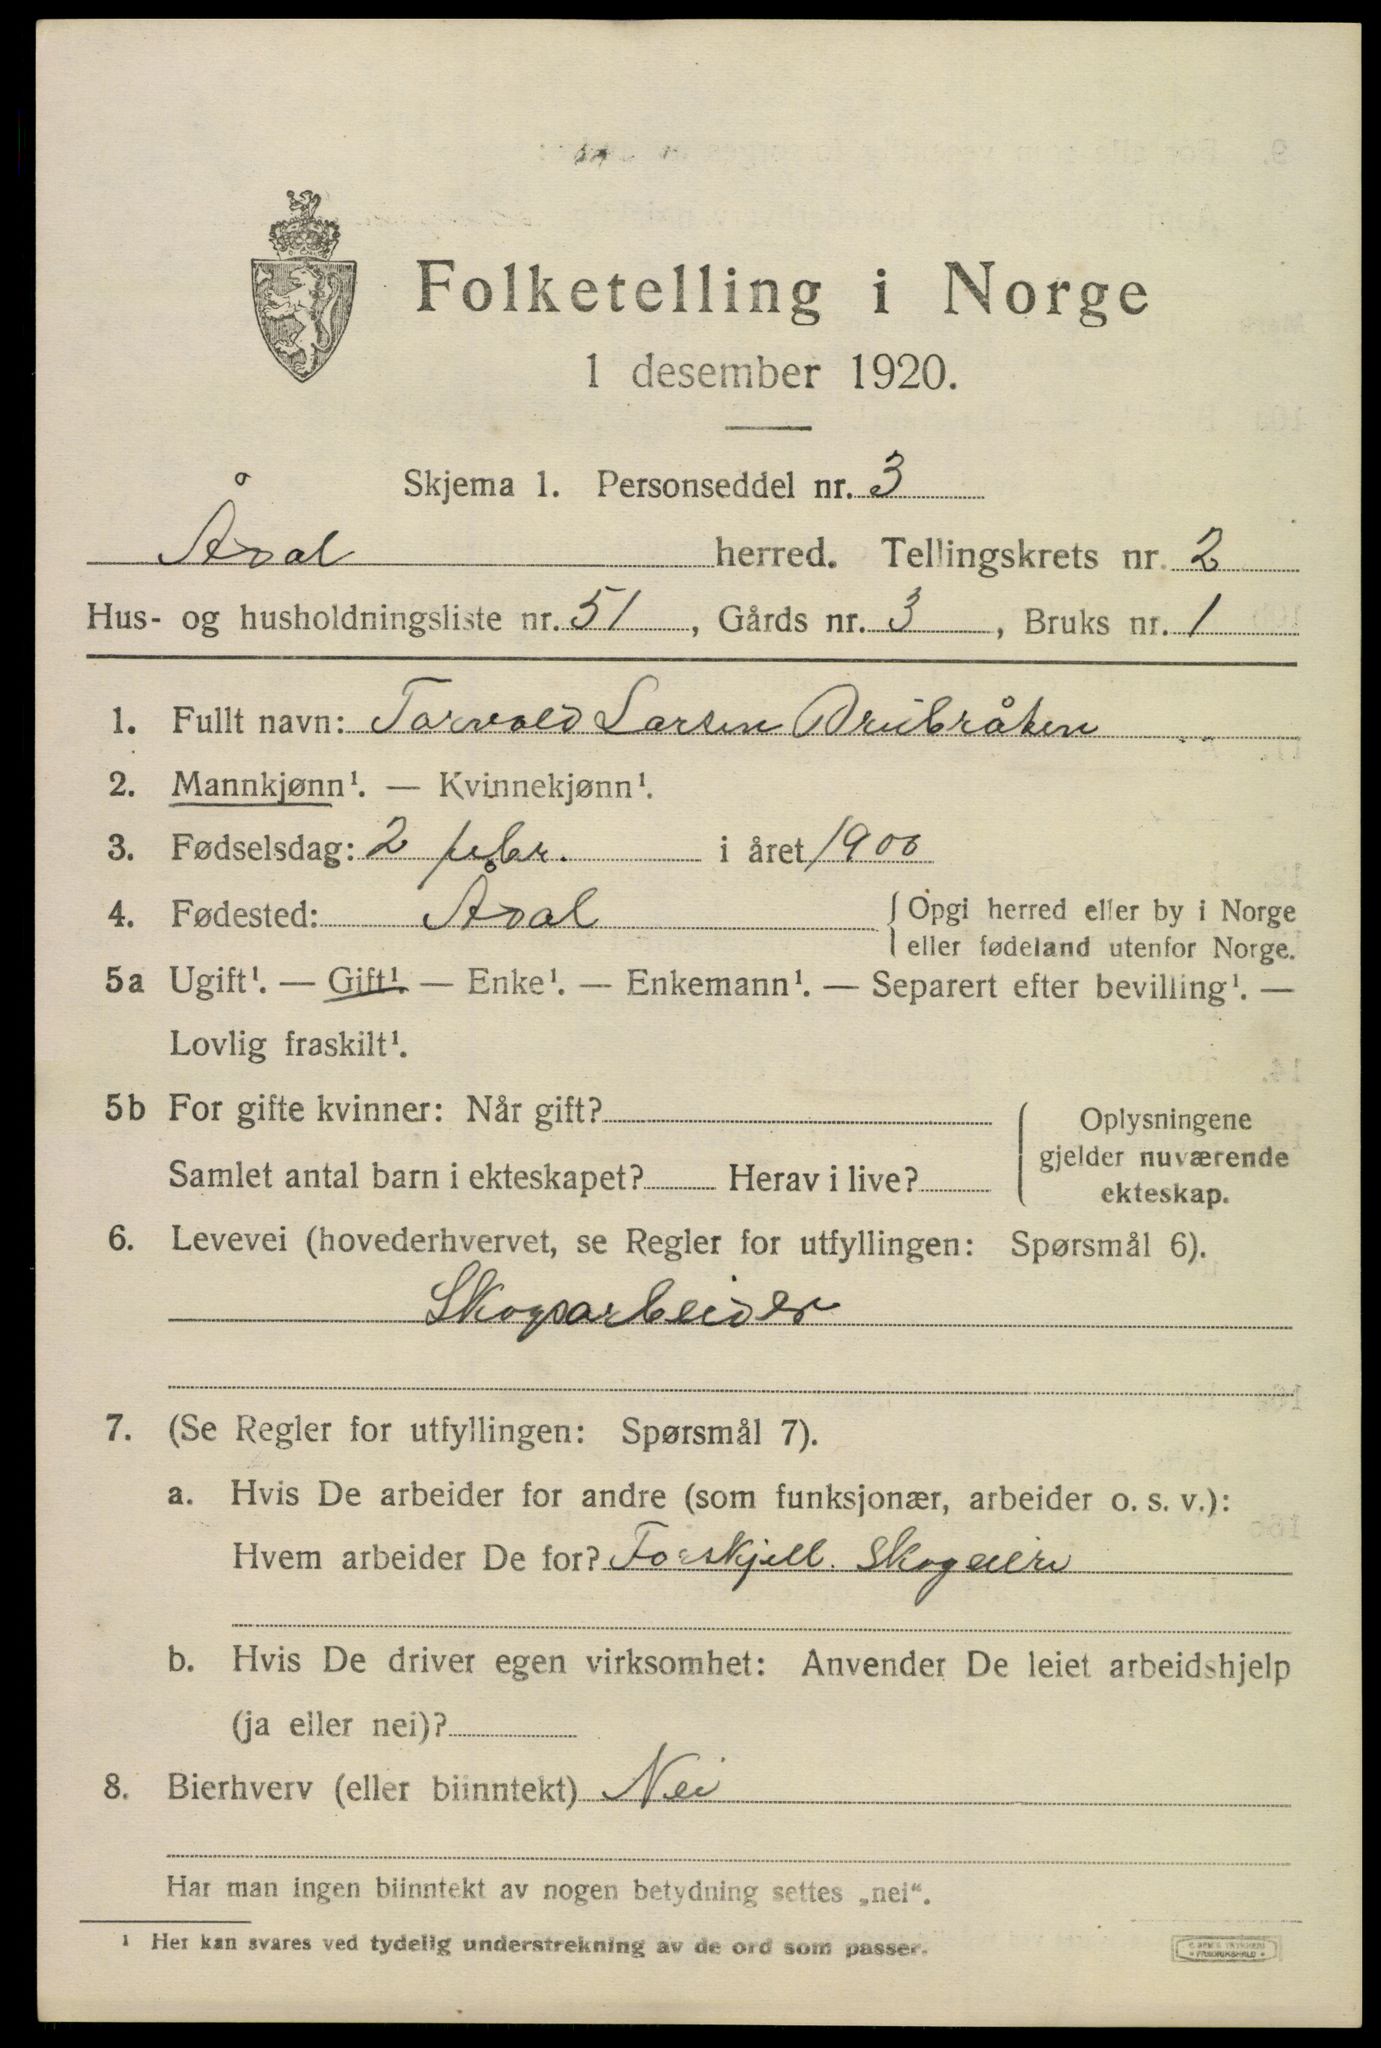 Folketelling i Norge
1 desember 1920.
Skjema 1. Personseddel nr. 3
Åsal herred. Tellingskrets nr. 2
Hus- og husholdningsliste nr. 51, Gårds nr. 3, Bruks nr. 1
1. Fullt navn: Torvald Larsen
2. Mannkjønn¹. — Kvinnekjønn¹.
3. Fødselsdag: 2 febr. i året 1900
4. Fødested: Ådal { Opgi herred eller by i Norge
eller fødeland utenfor Norge.
5a Ugift¹. — Gift¹. — Enke¹. — Enkemann¹. — Separert efter bevilling¹. —
Lovlig fraskilt¹.
5b For gifte kvinner: Når gift? { Oplysningene
gjelder nuværende
Samlet antal barn i ekteskapet? Herav i live?
ekteskap.
6. Levevei (hovederhvervet, se Regler for utfyllingen: Spørsmål 6).
Skogsarbeider
7. (Se Regler for utfyllingen: Spørsmål 7).
a. Hvis De arbeider for andre (som funksjonær, arbeider o. s. v.):
Hvem arbeider De for? Forskjell. Skogeiere
b. Hvis De driver egen virksomhet: Anvender De leiet arbeidshjelp
(ja eller nei)?
8. Bierhverv (eller biinntekt) Nei
Har man ingen biinntekt av nogen betydning settes „nei“.
¹ Her kan svares ved tydelig understrekning av de ord som passer.